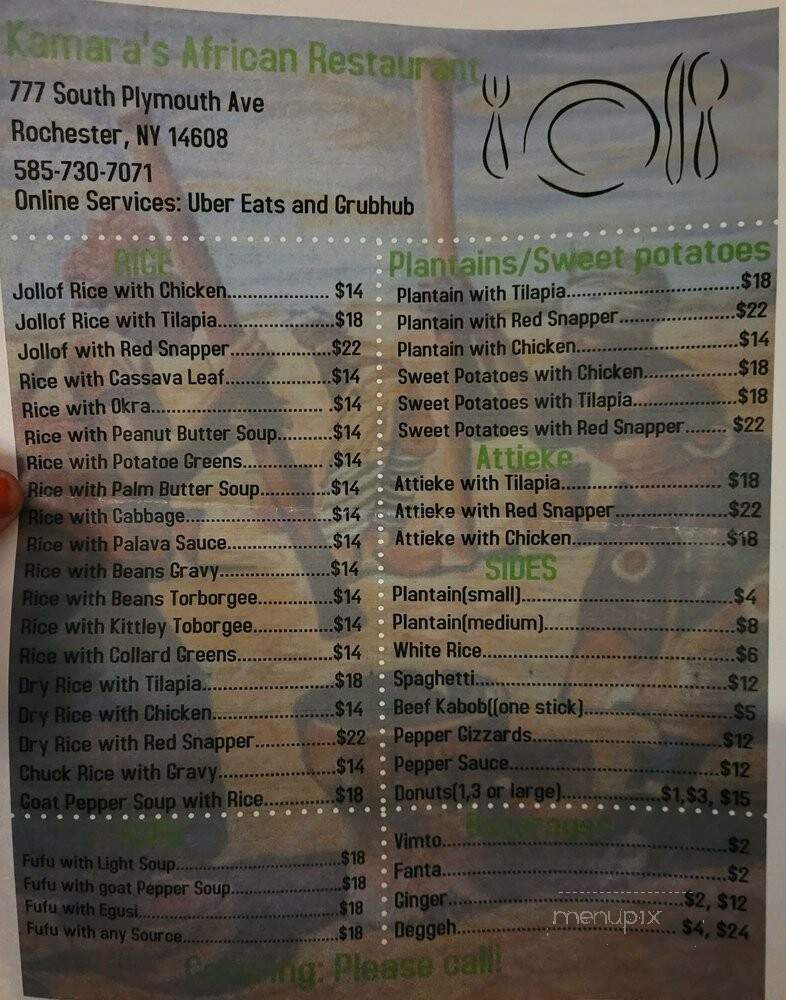 Kamara's African Restaurant
777 South Plymouth Ave
Rochester, NY 14608
585-730-7071
Online Services: Uber Eats and Grubhub
RICE
Jollof Rice with Chicken.................... $14
Jollof Rice with Tilapia.......................$18
Jollof with Red Snapper....................$22
Rice with Cassava Leaf.....................$14
Rice with Okra................................. .$14
Rice with Peanut Butter Soup..........$14
Rice with Potatoe Greens............... .$14
Rice with Palm Butter Soup.............$14
Rice with Cabbage............................$14
Rice with Palava Sauce....................$14
Rice with Beans Gravy.....................$14
Rice with Beans Torborgee..............$14
Rice with Kittley Toborgee...............$14
Rice with Collard Greens..................$14
Dry Rice with Tilapia.........................$18
Dry Rice with Chicken.......................$14
Dry Rice with Red Snapper...............$22
Chuck Rice with Gravy......................$14
Goat Pepper Soup with Rice.............$18
Fufu with Light Soup................................$18
Fufu with goat Pepper Soup.....................$18
Fufu with Egusi........................................$18
Fufu with any Source...............................$18
Plantains/Sweet potatoes
Plantain with Tilapia..................................$18
Plantain with Red Snapper.......................$22
Plantain with Chicken................................$14
Sweet Potatoes with Chicken...................$18
Sweet Potatoes with Tilapia.....................$18
Sweet Potatoes with Red Snapper........ $22
Attieke
Attieke with Tilapia............................... $18
Attieke with Red Snapper......................$22
Attieke with Chicken..............................$18
SIDES
Plantain(small)..........................................$4
Plantain(medium).....................................$8
White Rice.................................................$6
Spaghetti.................................................$12
Beef Kabob((one stick).............................$5
Pepper Gizzards.....................................$12
Pepper Sauce.........................................$12
Donuts(1,3 or large)...................$1,$3, $15
Vimto.........................................................$2
Fanta.........................................................$2
Ginger..............................................$2, $12
Deggeh........................................... $4, $24
menupix
Please call!